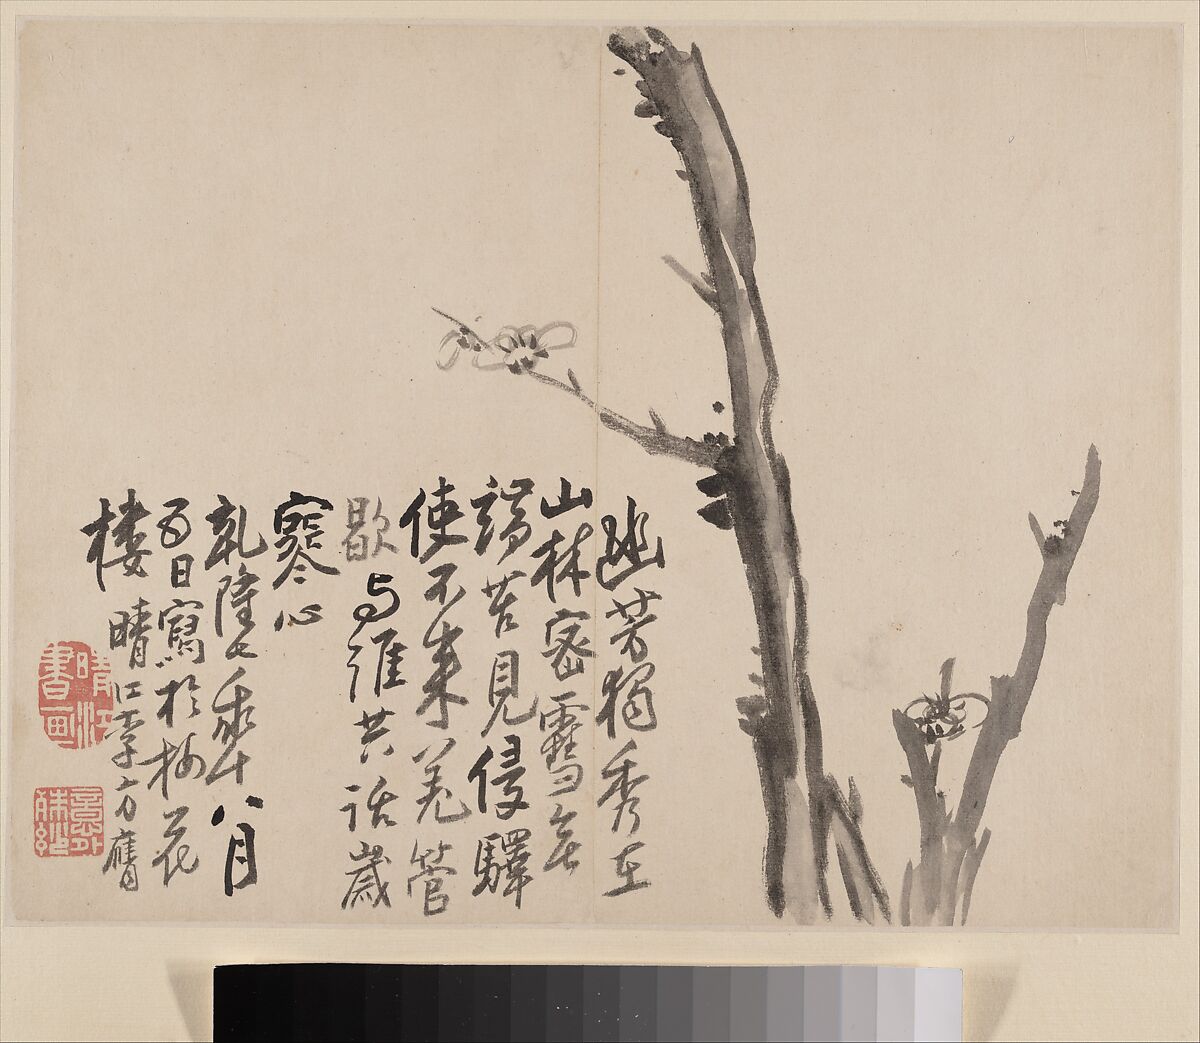 幽芳獨秀在
山林密雪無
端苦見侵驛
使不來羌管
歇与誰共話歲
寒心
乾隆 八月
五日寫於梅花
樓 晴江李方膺
晴江書畫